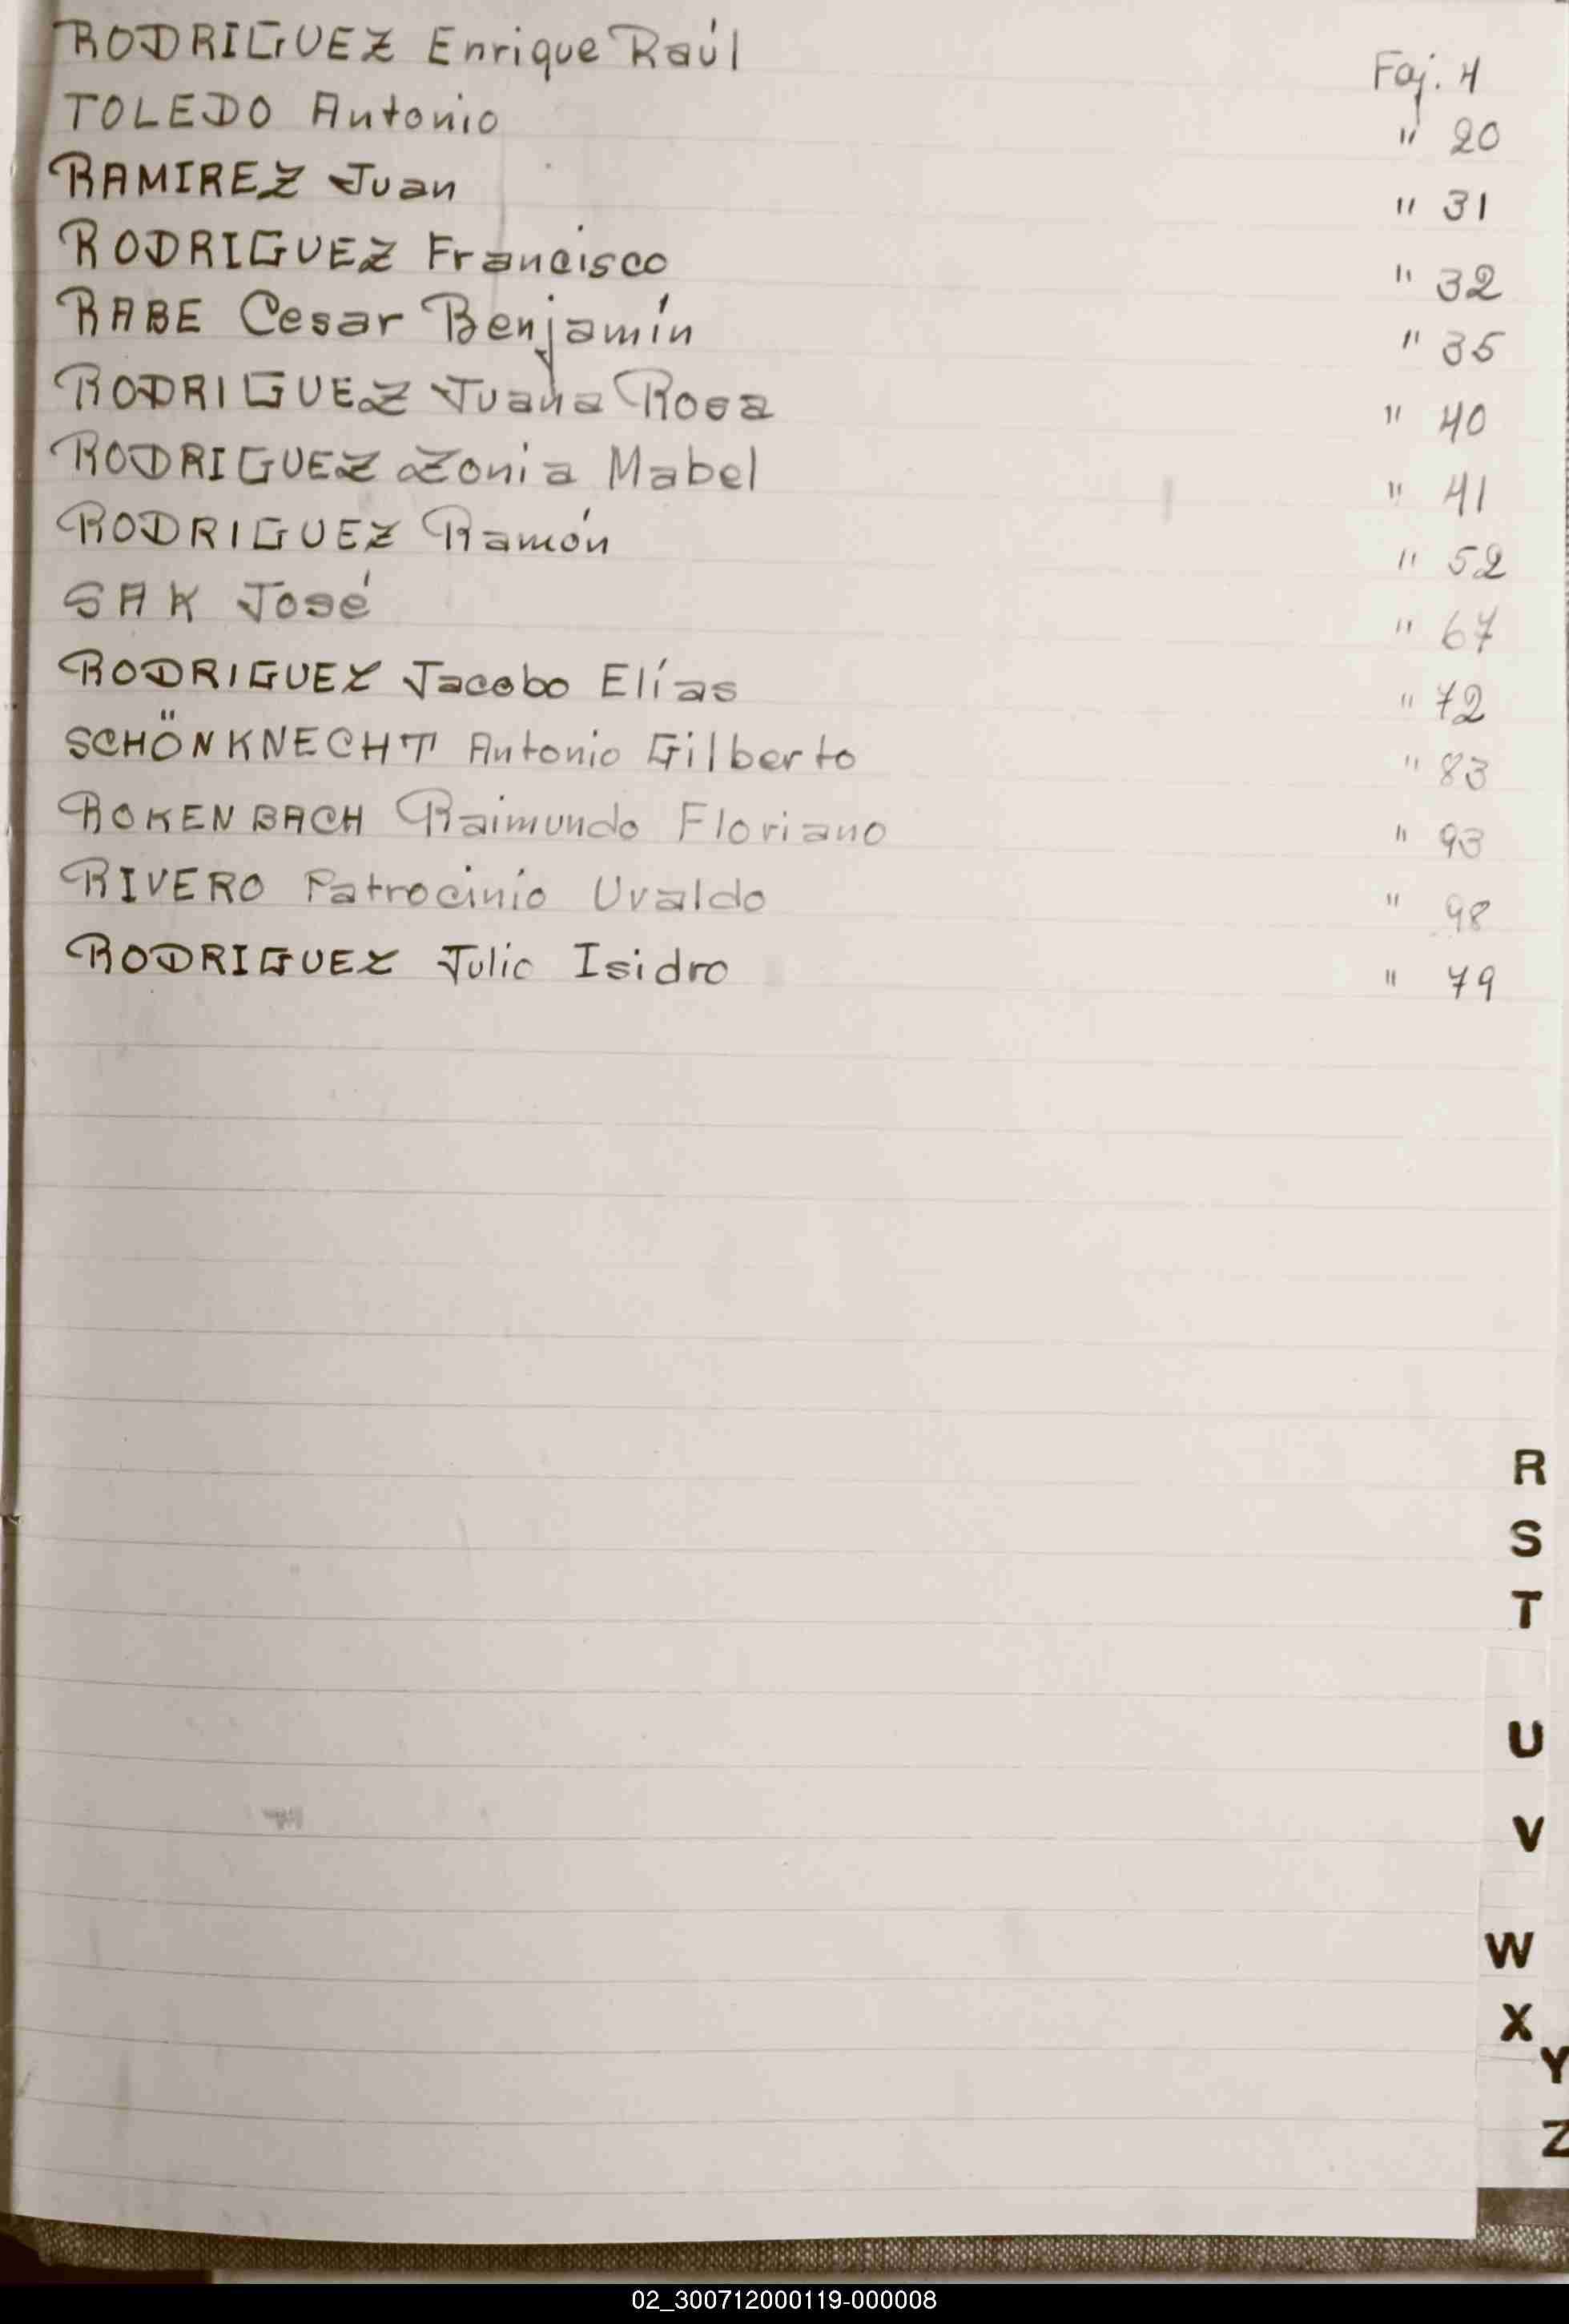 RODRIGUEZ Enrique Raúl Faj. 4
TOLEDO Antonio " 20
RAMIREZ Juan " 31
RODRIGUEZ Francisco " 32
RABE Cesar Benjamín " 35
RODRIGUEZ Juana Rosa " 40
RODRIGUEZ Zonia Mabel " 41
RODRIGUEZ Ramón " 52
SAK José " 67
RODRIGUEZ Jacobo Elías " 72
SCHÖNKNECHT Antonio Gilberto " 83
ROKENBACH Raimundo Floriano " 93
RIVERO Patrocinio Uvaldo " 98
RODRIGUEZ Julio Isidro " 79
R
S
T
U
V
W
X
Y
Z
02_300712000119-000008